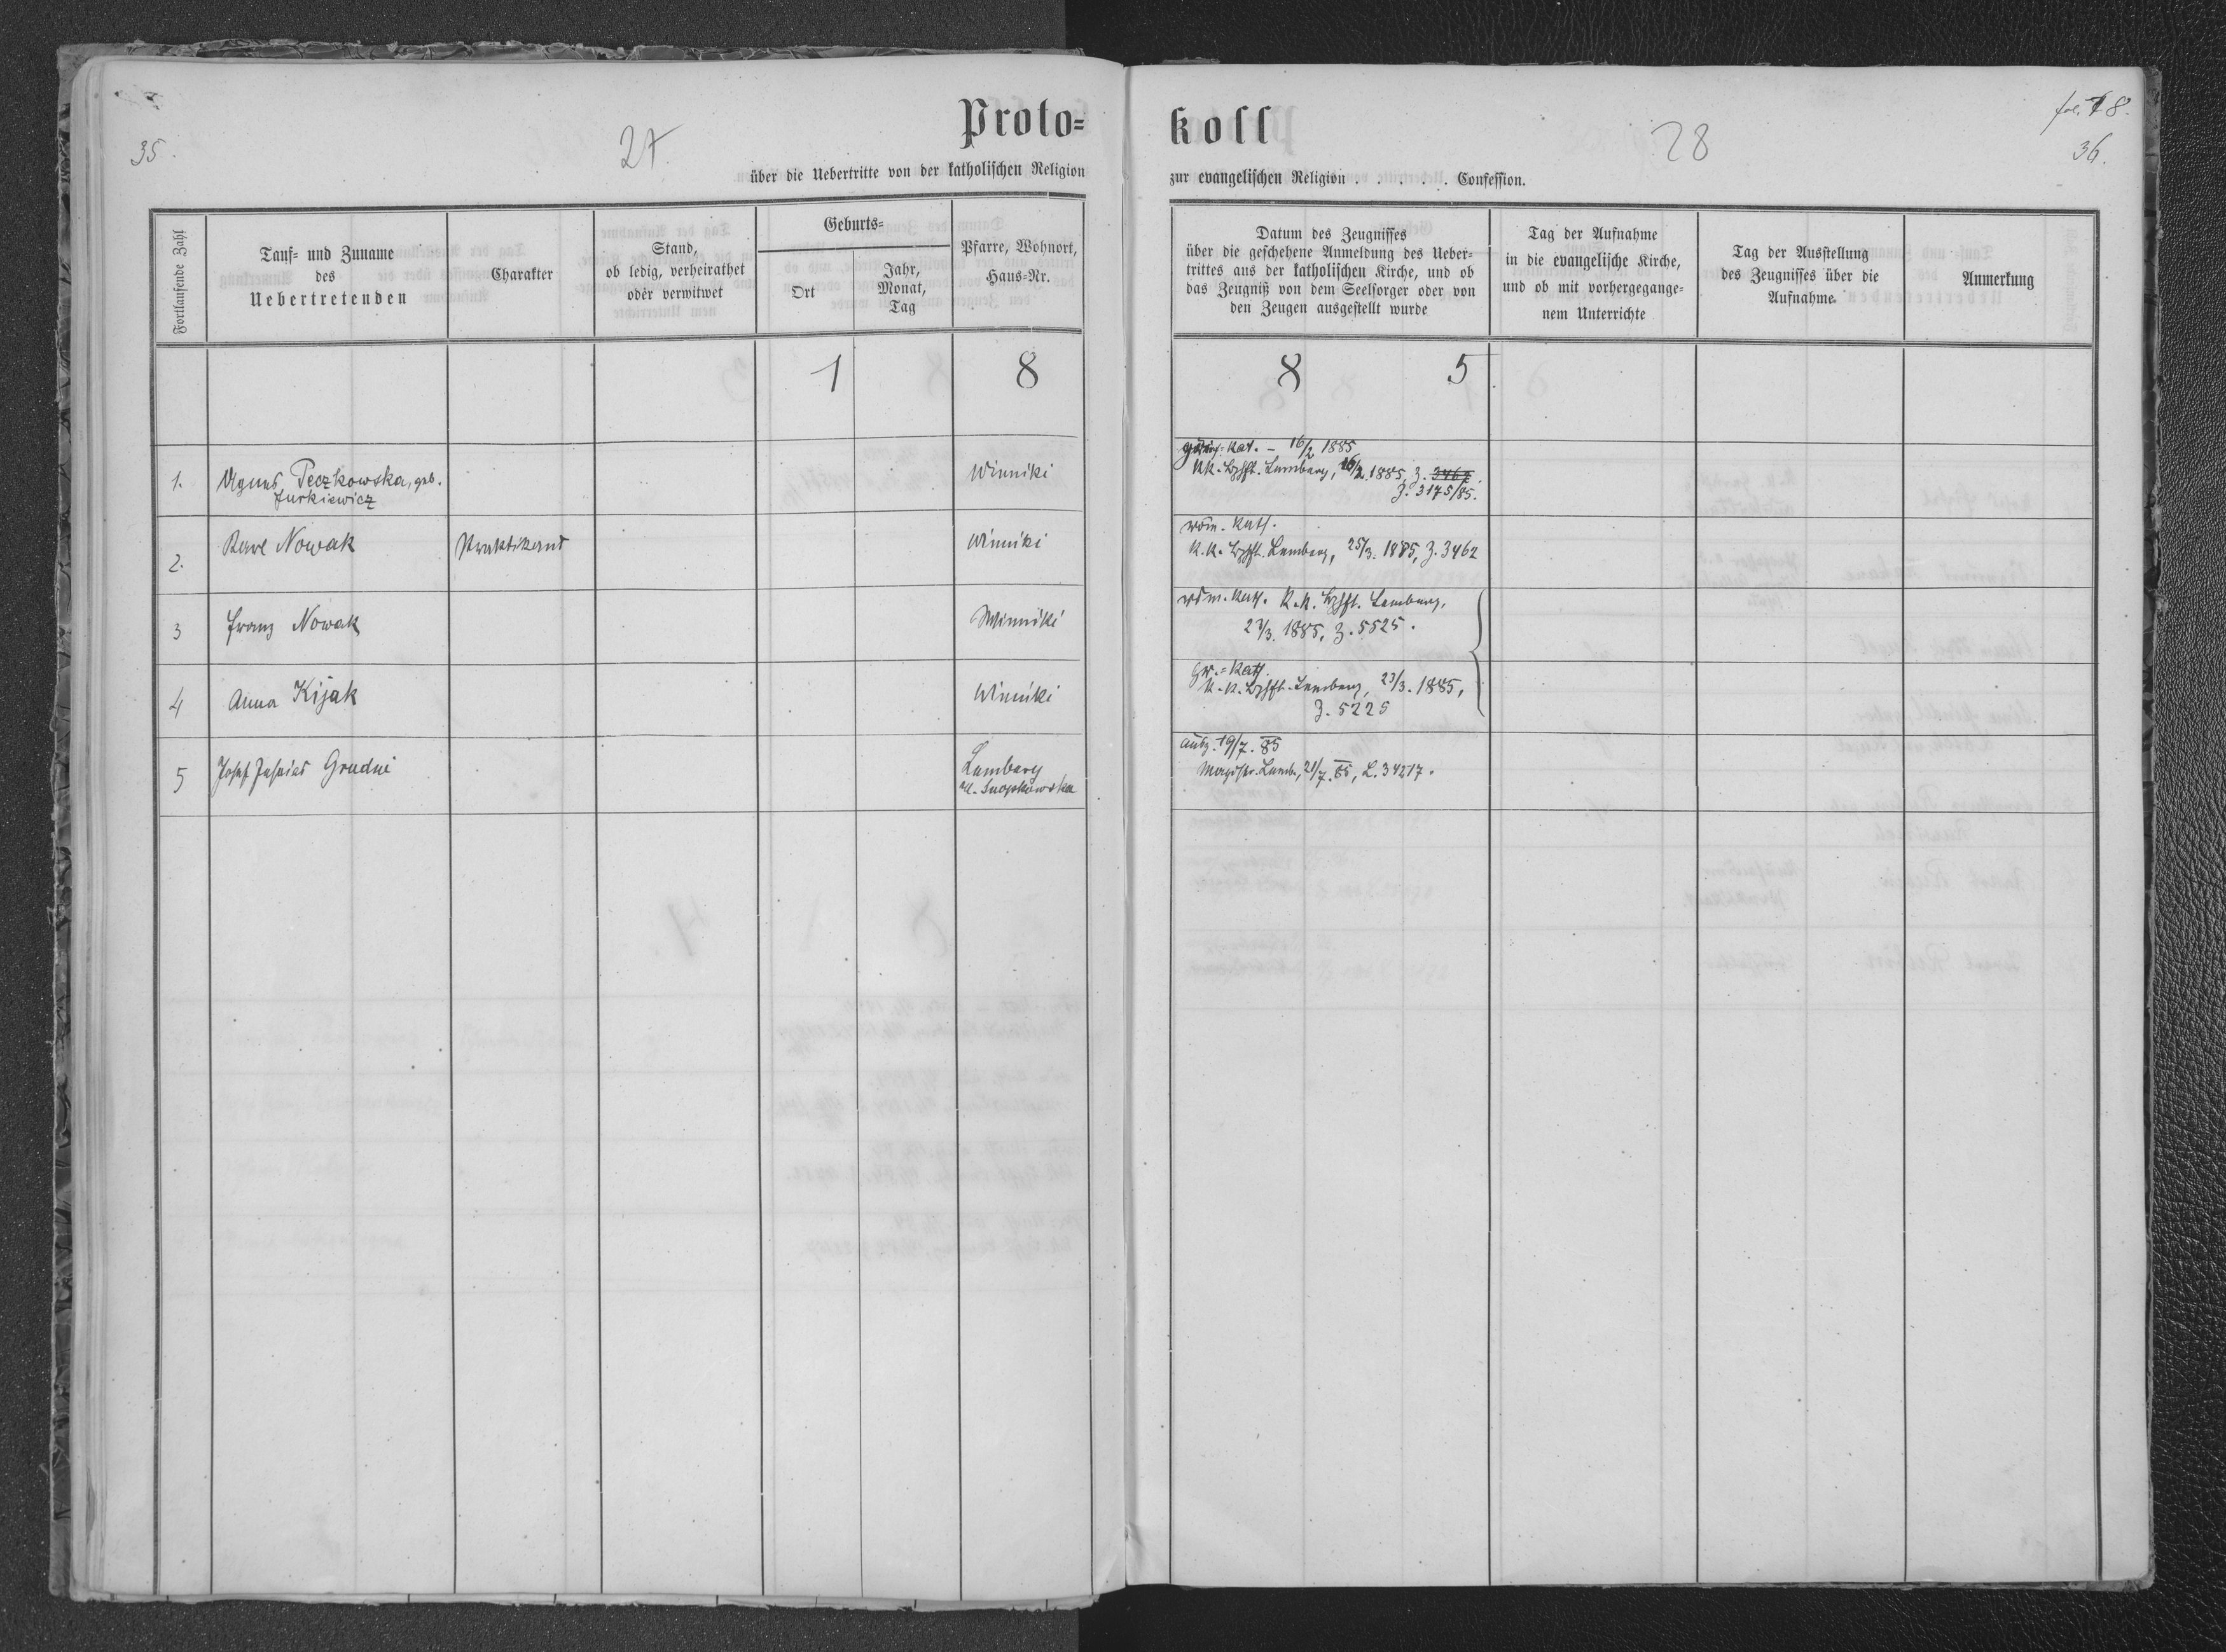 35.
27.
Proto=
über die Uebertritte von der katholischen Religion
Fortlaufende Zahl
Tauf= und Zuname
des
Uebertretenden
Charakter
Stand,
ob ledig, verheirathet
oder verwitwet
Geburts=
Ort
Jahr,
Monat,
Tag
Pfarre, Wohnort,
Haus=Nr.
1 8
1. Agnes Peczkowska, geb. Winniki
Jurkiewicz
2. Karl Nowak Praktikant Winniki
3 Franz Nowak Winniki
4 Anna Kijak Winniki
5 Josef Grudni Lemberg
Snopkowska
fol. 18.
36.
28
koll
zur evangelischen Religion . . . . . . Confession.
Datum des Zeugnisses
über die geschehene Anmeldung des Ueber=
trittes aus der katholischen Kirche, und ob
das Zeugniß von dem Seelsorger oder von
den Zeugen ausgestellt wurde
Tag der Aufnahme
in die evangelische Kirche,
und ob mit vorhergegange=
nem Unterrichte
Tag der Ausstellung
des Zeugnisses über die
Aufnahme.
Anmerkung
8 5
kat. - 16/2 1885
k.k. Bzhft. Lemberg, 16/2. 1885, Z. 3462.
Z. 3175/85.
röm. kath.
k.k. Bzhft. Lemberg, 25/3. 1885, Z. 3462
röm. kath. k.k. Bzhft. Lemberg,
23/3. 1885, Z. 5525.
Gr.=kath.
k.k. Bzhft. Lemberg, 23/3. 1885,
Z. 5225
19/7. 85
Magistr. Lemb., 21/7. 85, L. 34217.